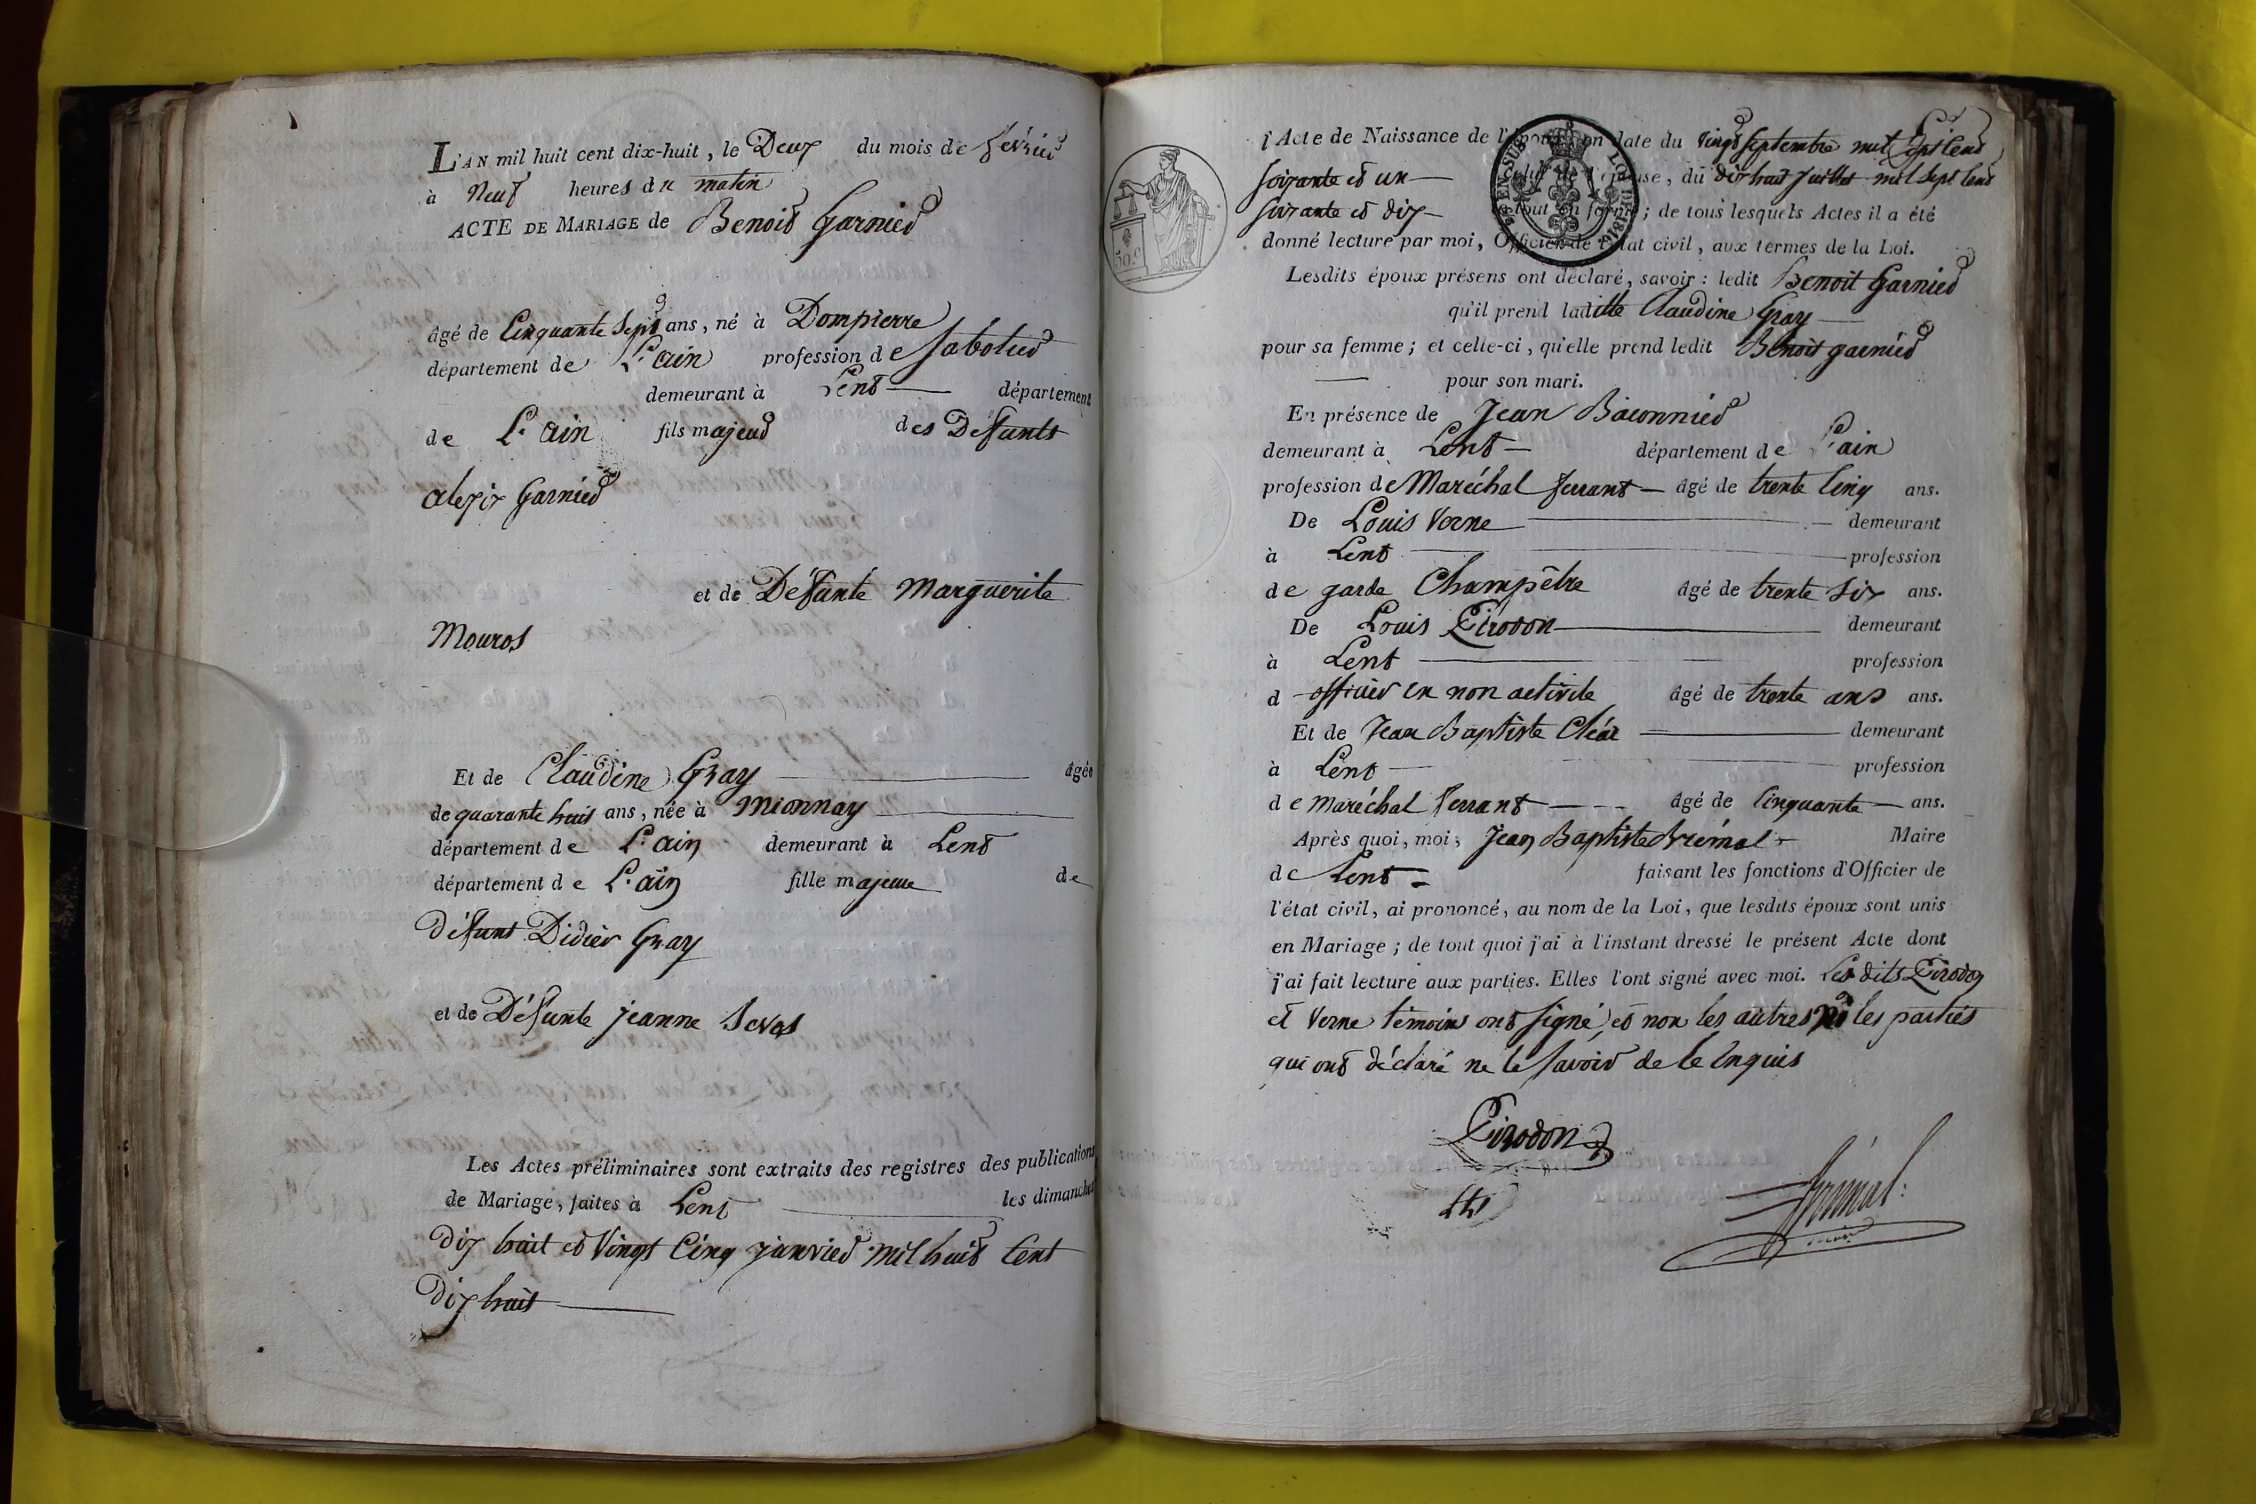 L'AN mil huit cent dix-huit, le Deux du mois de février
à Neuf heures du matin
ACTE DE MARIAGE de Benoit Garnier
âgé de Cinquante Sept ans, né à Dompierre
département de L'ain profession de Sabotier
demeurant à Lent département
de L'ain fils majeur des Défunts
alexis Garnier
et de Défunte Marguerite
Mouros
Et de Claudine Gray âgée
de quarante huit ans, née à Mionnay
département de L'ain demeurant à Lent
département de L'ain fille majeure de
Défunt Didier Gray
et de Défunte jeanne
Les Actes préliminaires sont extraits des registres des publications
de Mariage, faites à Lent les dimanches
Dix huit et Vingt Cinq janvier mil huit Cent
Dix huit
l'Acte de Naissance de l'époux en date du Vingt Septembre mil Sept Cent
Soixante et un celui de l'épouse, du dix huit Juillet mil Sept Cent
Soixante et dix le tout en forme; de tous lesquels Actes il a été
donné lecture par moi, Officier de l'état civil, aux termes de la Loi.
Lesdits époux présens ont déclaré, savoir: ledit Benoit Garnier
qu'il prend laditte Claudine Gray
pour sa femme; et celle-ci, qu'elle prend ledit Benoit garnier
pour son mari.
En présence de Jean Baconnier
demeurant à Lent département de L'ain
profession de Maréchal ferrant âgé de trente Cinq ans.
De Louis Verne demeurant
à Lent profession
de garde Champêtre âgé de trente Six ans.
De Louis Tirodon demeurant
à Lent profession
d officier en non activite âgé de trente ans ans.
Et de Jean Baptiste demeurant
à Lent profession
de Maréchal ferrant âgé de Cinquante ans.
Après quoi, moi, Jean Baptiste Maire
de Lent faisant les fonctions d'Officier de
l'état civil, ai prononcé, au nom de la Loi, que lesdits époux sont unis
en Mariage; de tout quoi j'ai à l'instant dressé le présent Acte dont
j'ai fait lecture aux parties. Elles l'ont signé avec moi. Les dits Tirodon
et Verne témoins ont Signé, et non les autres ni les parties
qui ont déclaré ne le Savoir de ce Enquis
Tirodon